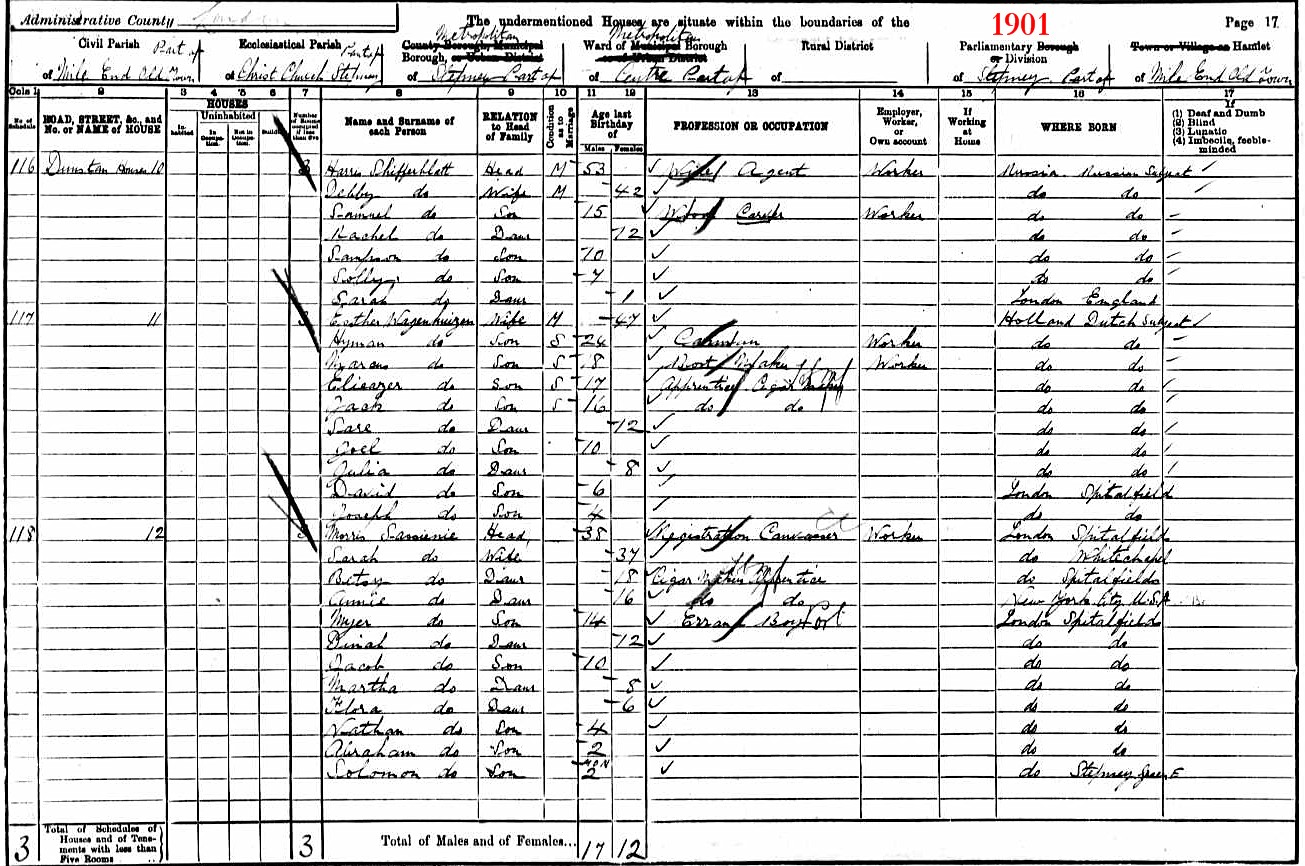 Administrative County London
The undermentioned Houses are situate within the boundaries of the
1901
Page 17
Civil Parish Part of
of Mile End Old Town
Ecclesiastical Parish Part of
of Christ Church Stepney
Metropolitan
County Borough, Municipal
Borough, or Urban District
of Stepney Part of
Metropolitan
Ward of Municipal Borough
or of Urban District
of Centre Part of
Rural District
of
Parliamentary Borough
or Division
of Stepney Part of
Town or Village or Hamlet
of Mile End Old Town
Cols 1 2 3 4 5 6 7 8 9 10 11 12 13 14 15 16 17
No. of Schedule
ROAD, STREET, &c., and No. or NAME of HOUSE
HOUSES
Inhabited
Uninhabited
In Occupation
Not in Occupation
Building
Number of Rooms occupied if less than five
Name and Surname of each Person
RELATION to Head of Family
Condition as to Marriage
Age last Birthday of
Males Females
PROFESSION OR OCCUPATION
Employer, Worker, or Own account
If Working at Home
WHERE BORN
If
(1) Deaf and Dumb
(2) Blind
(3) Lunatic
(4) Imbecile, feeble-minded
116 Dunstan Houses 10 3 Harris Schifferblatt Head M 53 Agent Worker Russia Russian Subject
Debby do Wife M 42 do do
Samuel do Son 15 Wood Carver Worker do do
Rachel do Daur 12 do do
Sampson do Son 10 do do
Solly do Son 7 do do
Sarah do Daur 1 London England
117 11 3 Esther Wagenhuizen Wife M 47 Holland Dutch Subject
Hyman do Son S 24 Carman Worker do do
Marcus do Son S 18 Boot Maker Worker do do
Elieazer do Son S 17 Apprentice Cigar Maker do do
Jack do Son S 16 do do do do
Sare do Daur 12 do do
Joel do Son 10 do do
Julia do Daur 8 do do
David do Son 6 London Spitalfield
Joseph do Son 4 do do
118 12 3 Morris Sansienie Head 38 Registration Canvasser Worker London Spitalfields
Sarah do Wife 37 do Whitechapel
Betsy do Daur 18 Cigar Maker Apprentice do Spitalfields
Annie do Daur 16 do do New York City U.S.A
Myer do Son 14 Errand Boy London Spitalfields
Dinah do Daur 12 do do
Jacob do Son 10 do do
Martha do Daur 8 do do
Flora do Daur 6 do do
Nathan do Son 4 do do
Abraham do Son 2 do do
Solomon do Son 2 MON do Stepney Green E
3 Total of Schedules of Houses and of Tenements with less than Five Rooms 3 Total of Males and of Females... 17 12